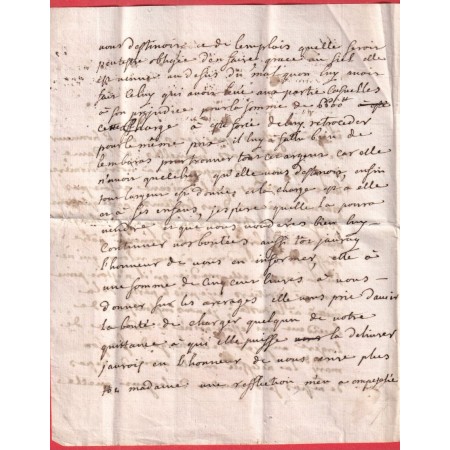 vous destinois et de lemplois quelle seroit
peutestre obligée den faire grace au siel elle
est venue au desus du mal quon luy avoit
fait celuy qui avoit levé aux partie casuelles
a son prejudice pour la somme de
cette charge a esté forcé de luy retroceder
pour le meme prix il luy a fallu bien de
lembaras pour trouver tous cet argens car elle
n'avoit que celuy qu'elle vous destinois, enfin
tout largent est donnée et la charge est a elle
ou a ses enfans, jespere quelle la poura
vendre et que vous voudrés bien luy
continuer vos bontées aussi tôt jauray
lhonneur de vous en informer, elle a
une somme de cinq cent livres a vous
donner sur les arerages elle vous prie davoir
la bonté de charger quelqun de votre
quittance a qui elle puisse la delivrer
jaurois eu lhonneur de vous ecrire plus
madame une reflection m'en a empesché